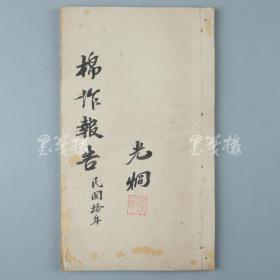 棉作報告
民国拾年
光烱
墨笺楼
墨笺楼